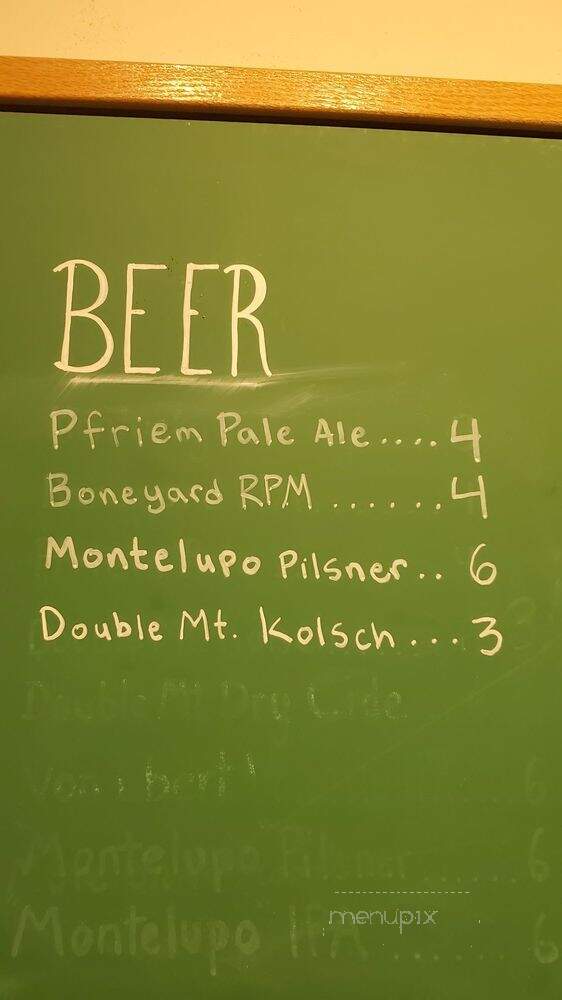 BEER
Pfriem Pale Ale.... 4
Boneyard RPM ...... 4
Montelupo Pilsner.. 6
Double Mt. Kolsch ... 3
Double Mt Dry
6
Montelupo Pilsner ...... 6
menupix
Montelupo IPA ...... 6